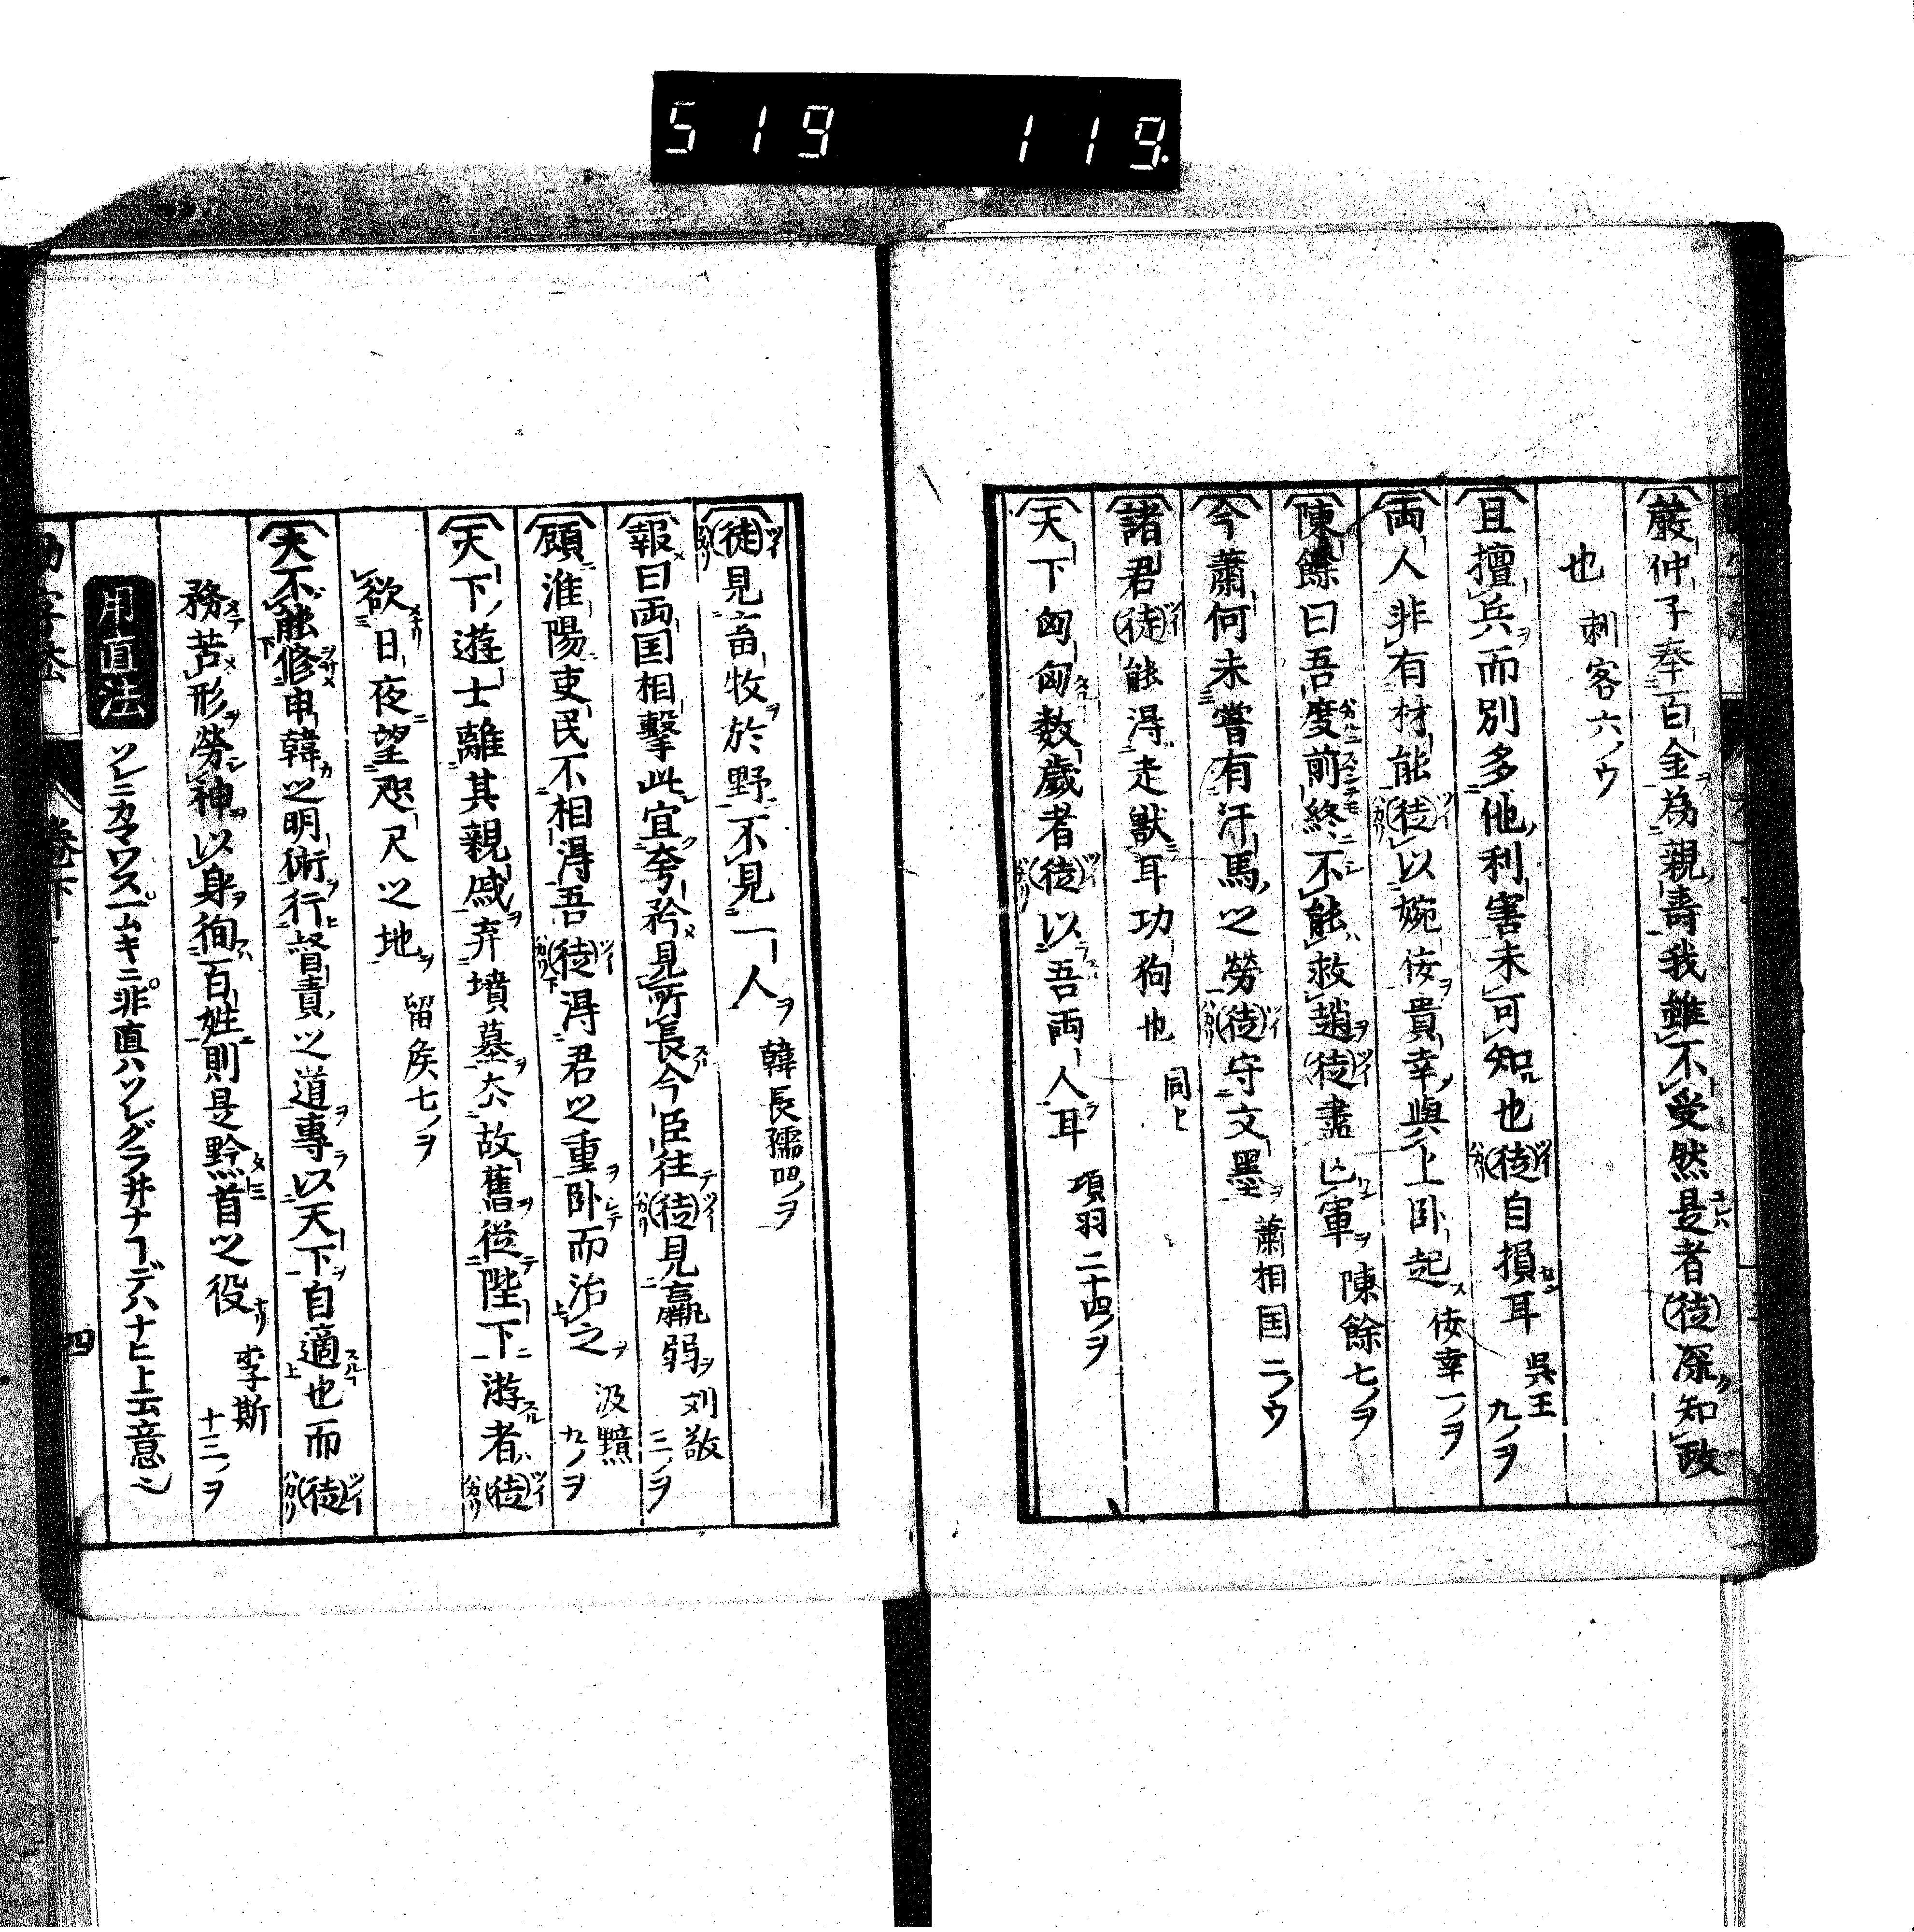 519 119.
嚴仲子奉百金為親壽我雖不受然是者徒深知政
也 刺客六ノウ
且擅兵而別多他利害未可知也徒自損耳 呉王九ノヲ
両人非有材能徒以婉佞貴幸與上卧起 佞幸一ノヲ
陳餘曰吾度前終不能救趙徒盡亡軍 陳餘七ノヲ
今蕭何未嘗有汗馬之勞徒守文墨 蕭相国二ノウ
諸君徒能得走獸耳功狗也 同上
天下匈匈数歲者徒以吾両人耳 項羽二十四ノヲ
徒見畜牧於野不見一人 韓長孺四ノヲ
報曰両国相擊此宜夸矜見所長今臣往徒見羸弱 刘敬三ノヲ
顧淮陽吏民不相得吾徒得君之重卧而治之 汲黯九ノヲ
天下遊士離其親戚弃墳墓去故舊從陛下游者徒
欲日夜望咫尺之地 留侯七ノヲ
夫不能修申韓之明術行督責之道專以天下自適也而徒
務苦形勞神以身徇百姓則是黔首之役 李斯十三ノヲ
用直法 ソレニカマワス一ムキニ非直ハソレグラ井ナコデハナヒト云意
卷下
四